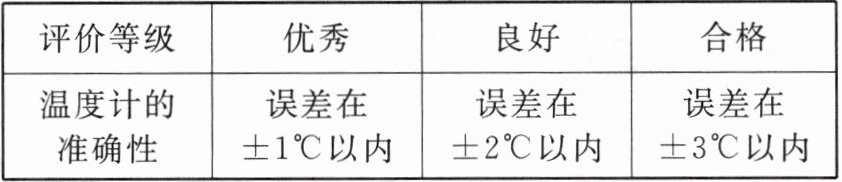 评价等级 优秀 良好 合格
温度计的 误差在 误差在 误差在
准确性 ±1℃以内 ±2℃以内 ±3℃以内